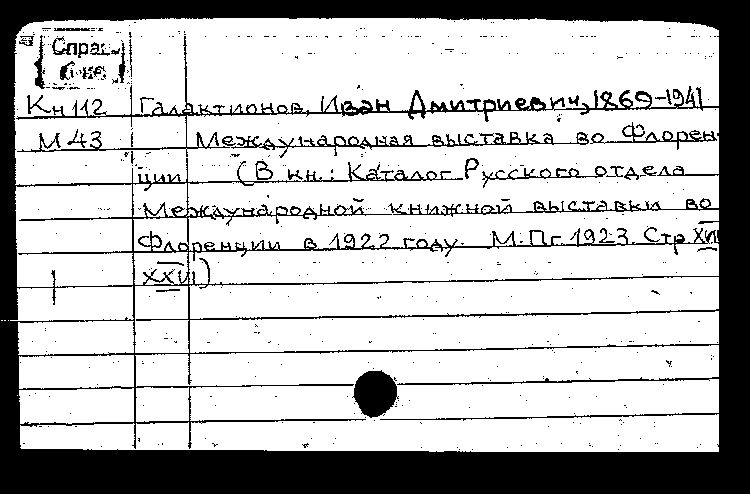 Справ.
б-ка
Кн 112 Галактионов, Иван Дмитриевич, 1869-1941
М 43 Международная выставка во Флорен-
ции (В кн.: Каталог Русского отдела
Международной книжной выставки во
Флоренции в 1922 году. М.-Пг. 1923. Стр
XXVI)